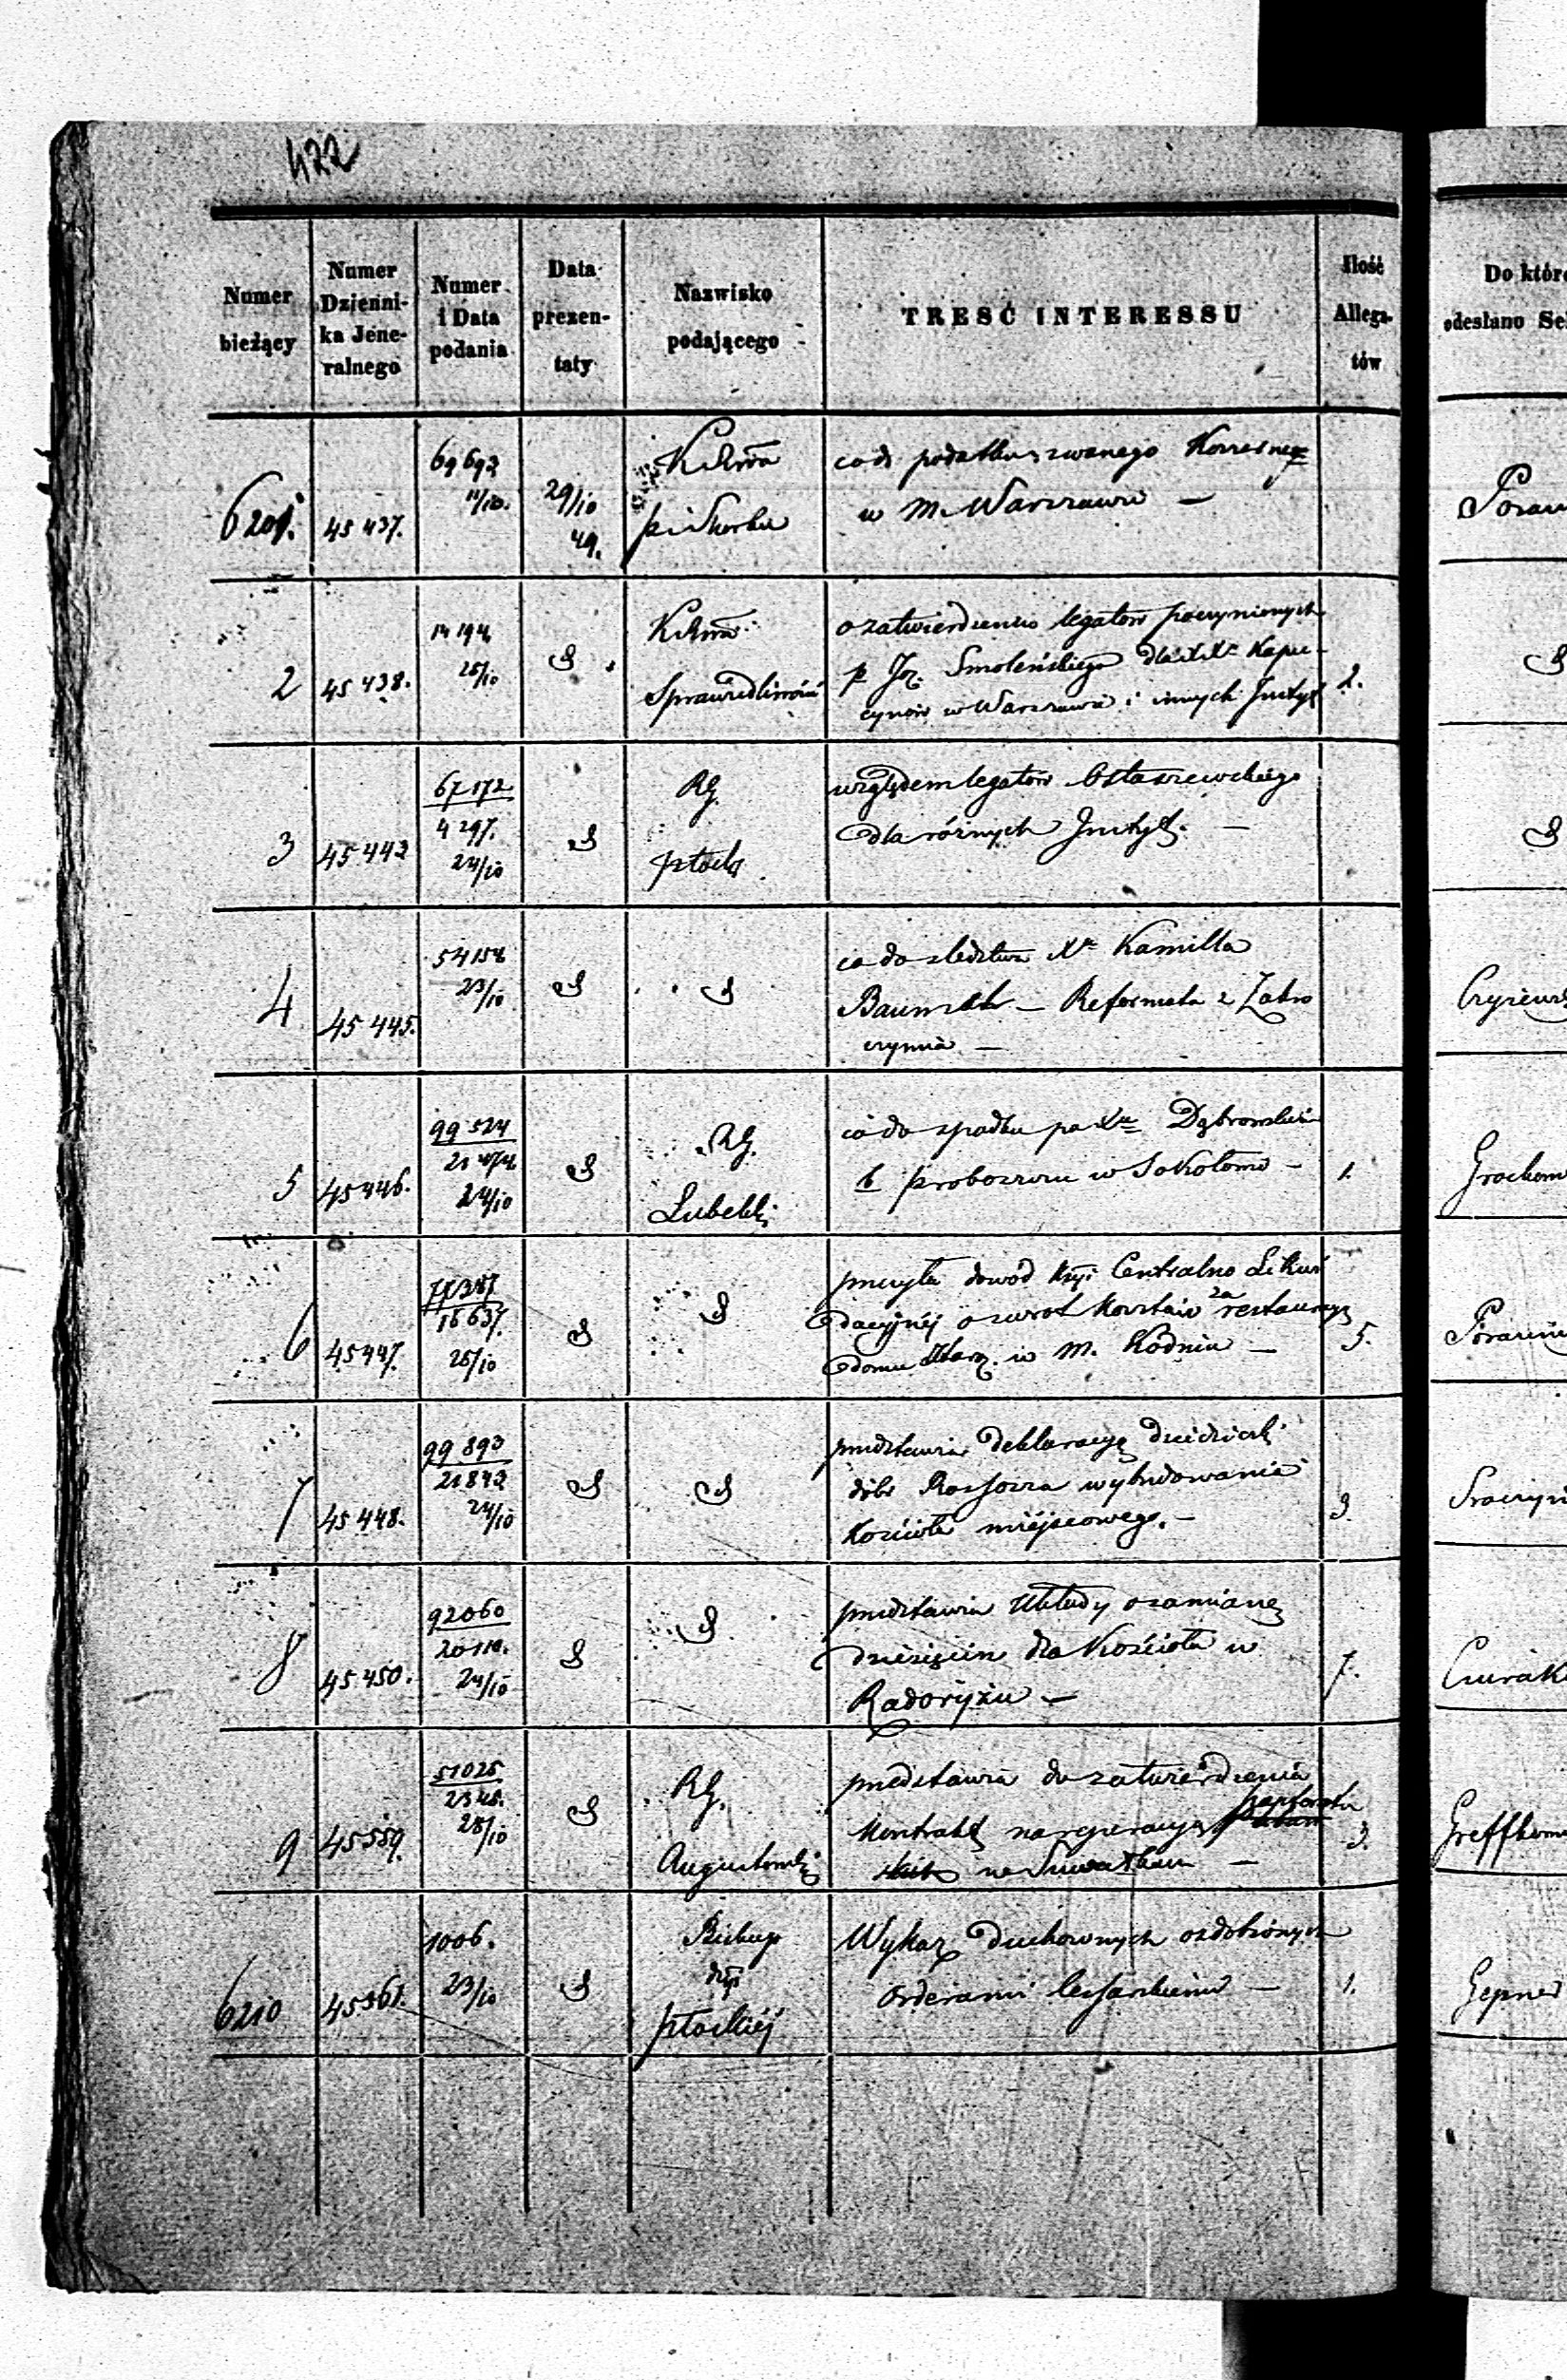 422
Numer bieżący
Numer Dzienni- ka Jene- ralnego
Numer i Data podania
Data prezen- taty
Nazwisko podającego
TREŚĆ INTERESSU
Ilość Allega- tów
Do któr
odesłano Se
6201.
45 437.
69 692
11/10.
29/10
49.
p i Skarbu
co do podatku zwanego
w M. Warszawie —
2
45 438.
14 194
25/10
Sprawiedliwości
o zatwierdzeniu legatów poczynionych
p Joz. Smoleńskiego dla XX Kapu-
cynów w Warszawie i innych Instyt
2.
3
45 442
67 172
4 297.
24/10
RG.
Płock
względem legatów Ostaszewskiego
dla różnych Instyt. —
4
45 445.
54 154
23/10
co do śledztwa Xa Kamilla
— Reformata z Zakro
czymia —
5
45 446.
99 524
24/10
RG.
Lubelski
co do spadku po Xu Dąbrowskim
b proboszczu w Sokołowie —
1.
6
45 447.
16 637.
25/10
dowód Centralno Likwi
dacyjnéj o zwrot kosztów za restauracyę
domu w M. Kodniu —
5.
7
45 448.
99 893
21 842
24/10
przedstawia deklaracyę dziedziczki
dóbr Rossosza wybudowania
Kościoła miéjscowego. —
3.
8
45 450.
92 060
20 110.
24/10
przedstawia układy o zamianę
dziesięcin dla Kościoła w
Radoryżu —
7.
9
45 559.
51 025
2 348.
25/10
RG.
Augustowski
przedstawia do zatwierdzenia
Kontrakt na reperacyę
w Suwałkach —
3.
6210
45 561.
1006.
23/10
Biskup
dyi
Płockiéj
Wykaz duchownych ozdobionych
orderami Cesarskiemi —
1.
Gepner